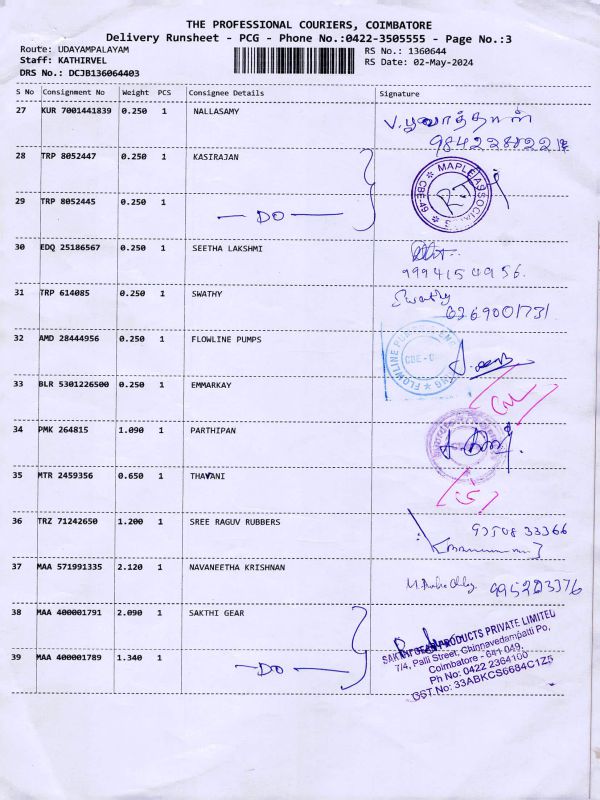 THE PROFESSIONAL COURIERS, COIMBATORE
Delivery Runsheet - PCG - Phone No.:0422-3505555 - Page No.:3
Route: UDAYAMPALAYAM
RS No.: 1360644
Staff: KATHIRVEL
RS Date: 02-May-2024
DRS No.: DCJB136064403
S No Consignment No Weight PCS Consignee Details Signature
27 KUR 7001441839 0.250 1 NALLASAMY
28 TRP 8052447 0.250 1 KASIRAJAN
MAPLE ASSOCIATES
CBE-641
29 TRP 8052445 0.250 1 — DO —
30 EDQ 25186567 0.250 1 SEETHA LAKSHMI
31 TRP 614085 0.250 1 SWATHY Swathy
32 AMD 28444956 0.250 1 FLOWLINE PUMPS
FLOWLINE
33 BLR 5301226500 0.250 1 EMMARKAY
34 PMK 264815 1.090 1 PARTHIPAN
35 MTR 2459356 0.650 1 THAVANI
36 TRZ 71242650 1.200 1 SREE RAGUV RUBBERS
37 MAA 571991335 2.120 1 NAVANEETHA KRISHNAN
38 MAA 400001791 2.090 1 SAKTHI GEAR
39 MAA 400001789 1.340 1 — DO —
SAKTHI GEAR PRODUCTS PRIVATE LIMITED
7/4, Palli Street, Chinnavedampatti Po,
Coimbatore - 641 049.
Ph No: 0422 2364100
GST No: 33ABKCS6684C1Z5